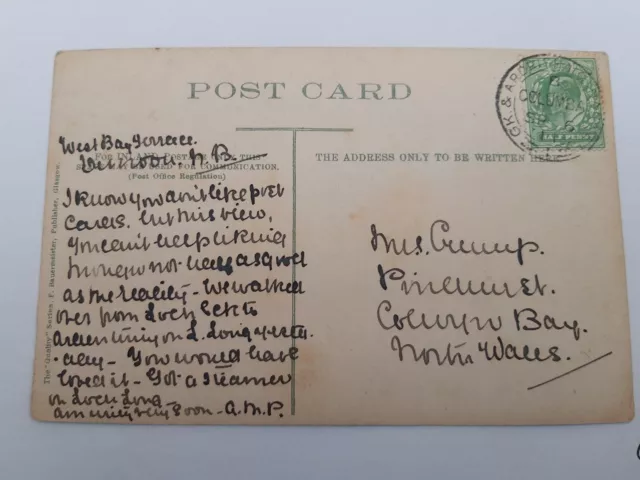 POST CARD
West Bay Terrace.
N.B.
FOR INLAND POSTAGE ONLY THIS
SPACE MAY BE USED FOR COMMUNICATION.
(Post Office Regulation)
THE ADDRESS ONLY TO BE WRITTEN HERE
I know you don't like pict
Cards. but this view,
you can't help liking
though not half as good
as the reality - We walked
over from Loch Eck to
Ardentinny on L. Long yester.
day - You would have
loved it - Got a steamer
on Loch Long
soon - A.M.P.
Mrs. Crump.
Pinehurst.
Colwyn Bay.
North Wales.
The "Godfrey" Series, F. Bauermeister, Publisher, Glasgow.